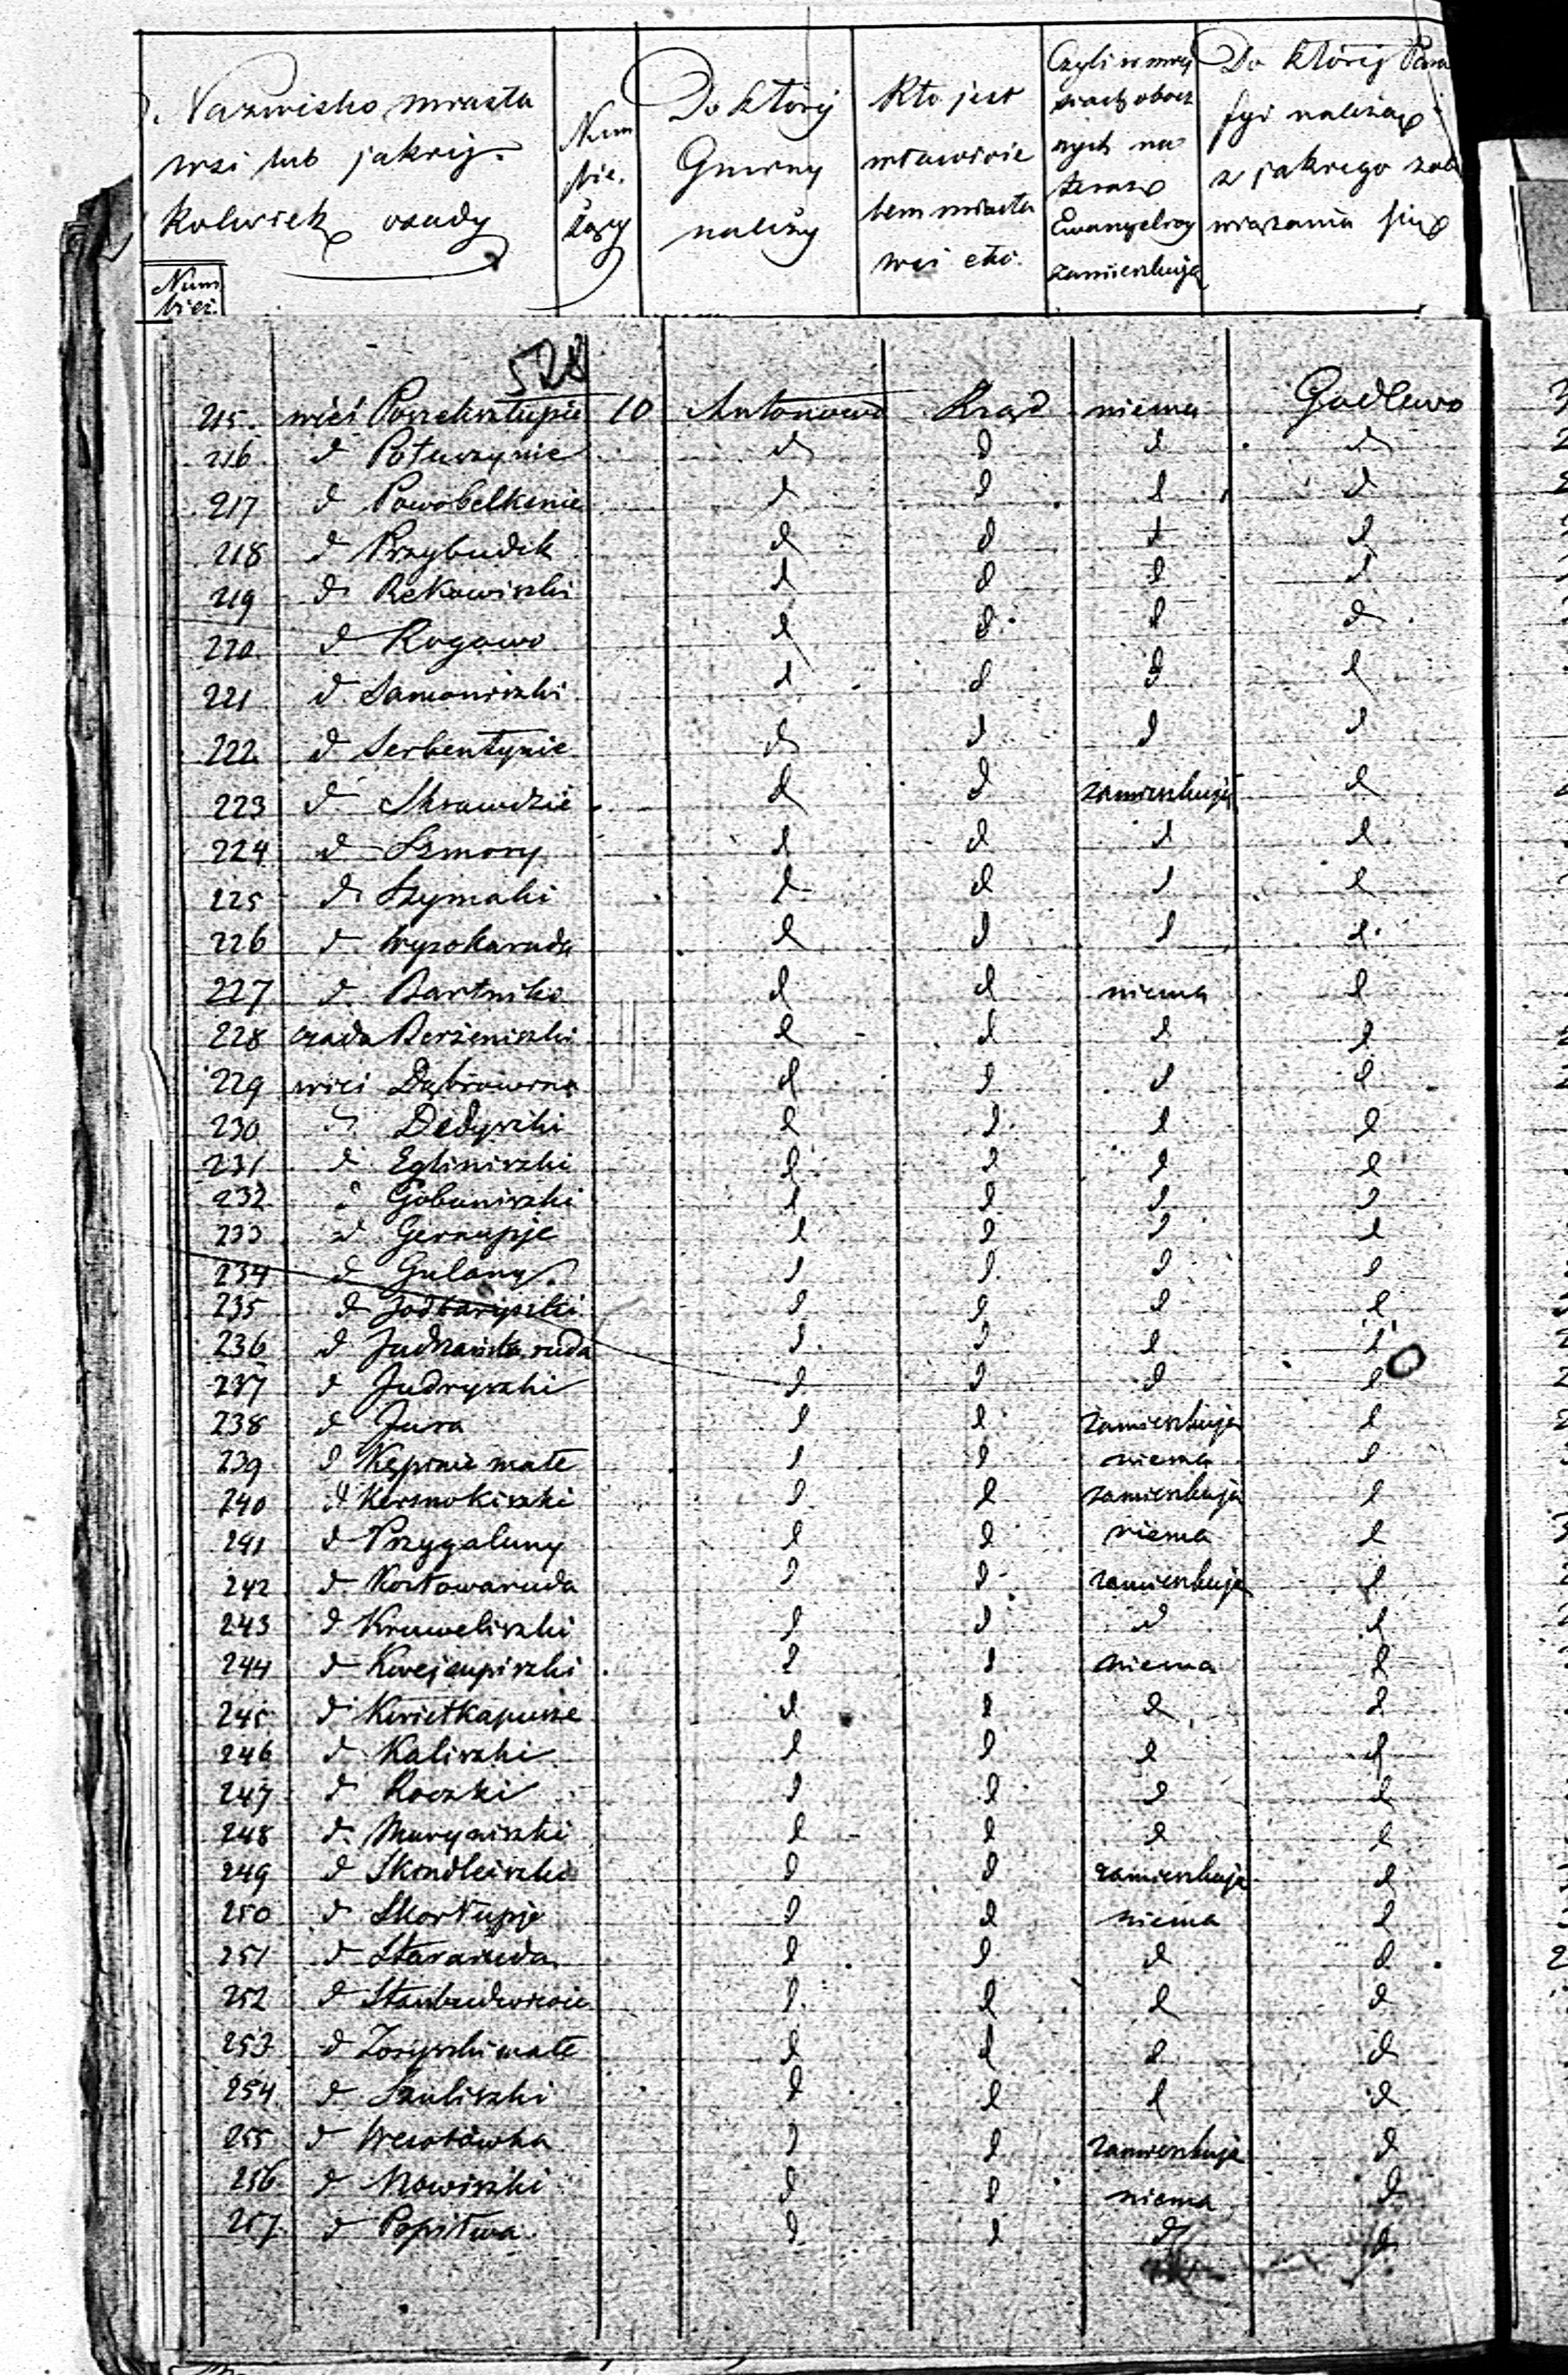 Nazwisko miasta
wsi lub jakiej
kolwiek osady
Num
bież.
Num
bie.
żący
Do której
Gminy
należy
Kto jest
właścicie
lem miasta
wsi etc.
Czyli w
nych na
teraz
Ewangelicy
zamieszkują
Do której Para
fyi należą i
z jakiego zobo
wiązania się
528
215. wieś Poszeksztupie 10 Antonowo Rząd niema Godlewo
216 d Potuszynie d d d d
217 d Powobelksnie d d d d
218 d Przybudek d d d d
219 d Rekowiszki d d d d
220 d Rogowo d d d d
221 d Samaniszki d d d d
222 d Serbentynie d d d d
223 d Skrawdzie d d zamieszkują d
224 d Szmory d d d d
225 d Szymaki d d d d
226 d Wysokaruda d d d d
227 d Bartniki d d niema d
228 osada Berżeniszki d d d d
229 wieś Dąbrowszna d d d d
230 d Dedyszki d d d d
231 d Egliniszki d d d d
232 d Gobaniszki d d d d
233 d Gernupje d d d d
234 d Gulany d d d d
235 d Jodbaryszki d d d d
236 d Judrańska ruda d d d d
237 d Judryszki d d d d
238 d Jura d d zamieszkują d
239 d Kępinie małe d d niema d
240 d Kersnokiszki d d zamieszkują d
241 d Przygaluny d d niema d
242 d Kozłowaruda d d zamieszkują d
243 d Kruweliszki d d d d
244 d Kwejsupiszki d d niema d
245 d Kwietkapusze d d d d
246 d Kaliszki d d d d
247 d Roczki d d d d
248 d Maryniszki d d d d
249 d Skindleiszki d d zamieszkują d
250 d Skortupje d d niema d
251 d Mararuda d d d d
252 d Starbudwiecie d d d d
253 d Zosyszki małe d d d d
254 d Szuliszki d d d d
255 d Wesołówka d d zamieszkują d
256 d Nowiszki d d niema d
257. d Popiltwa d d d d